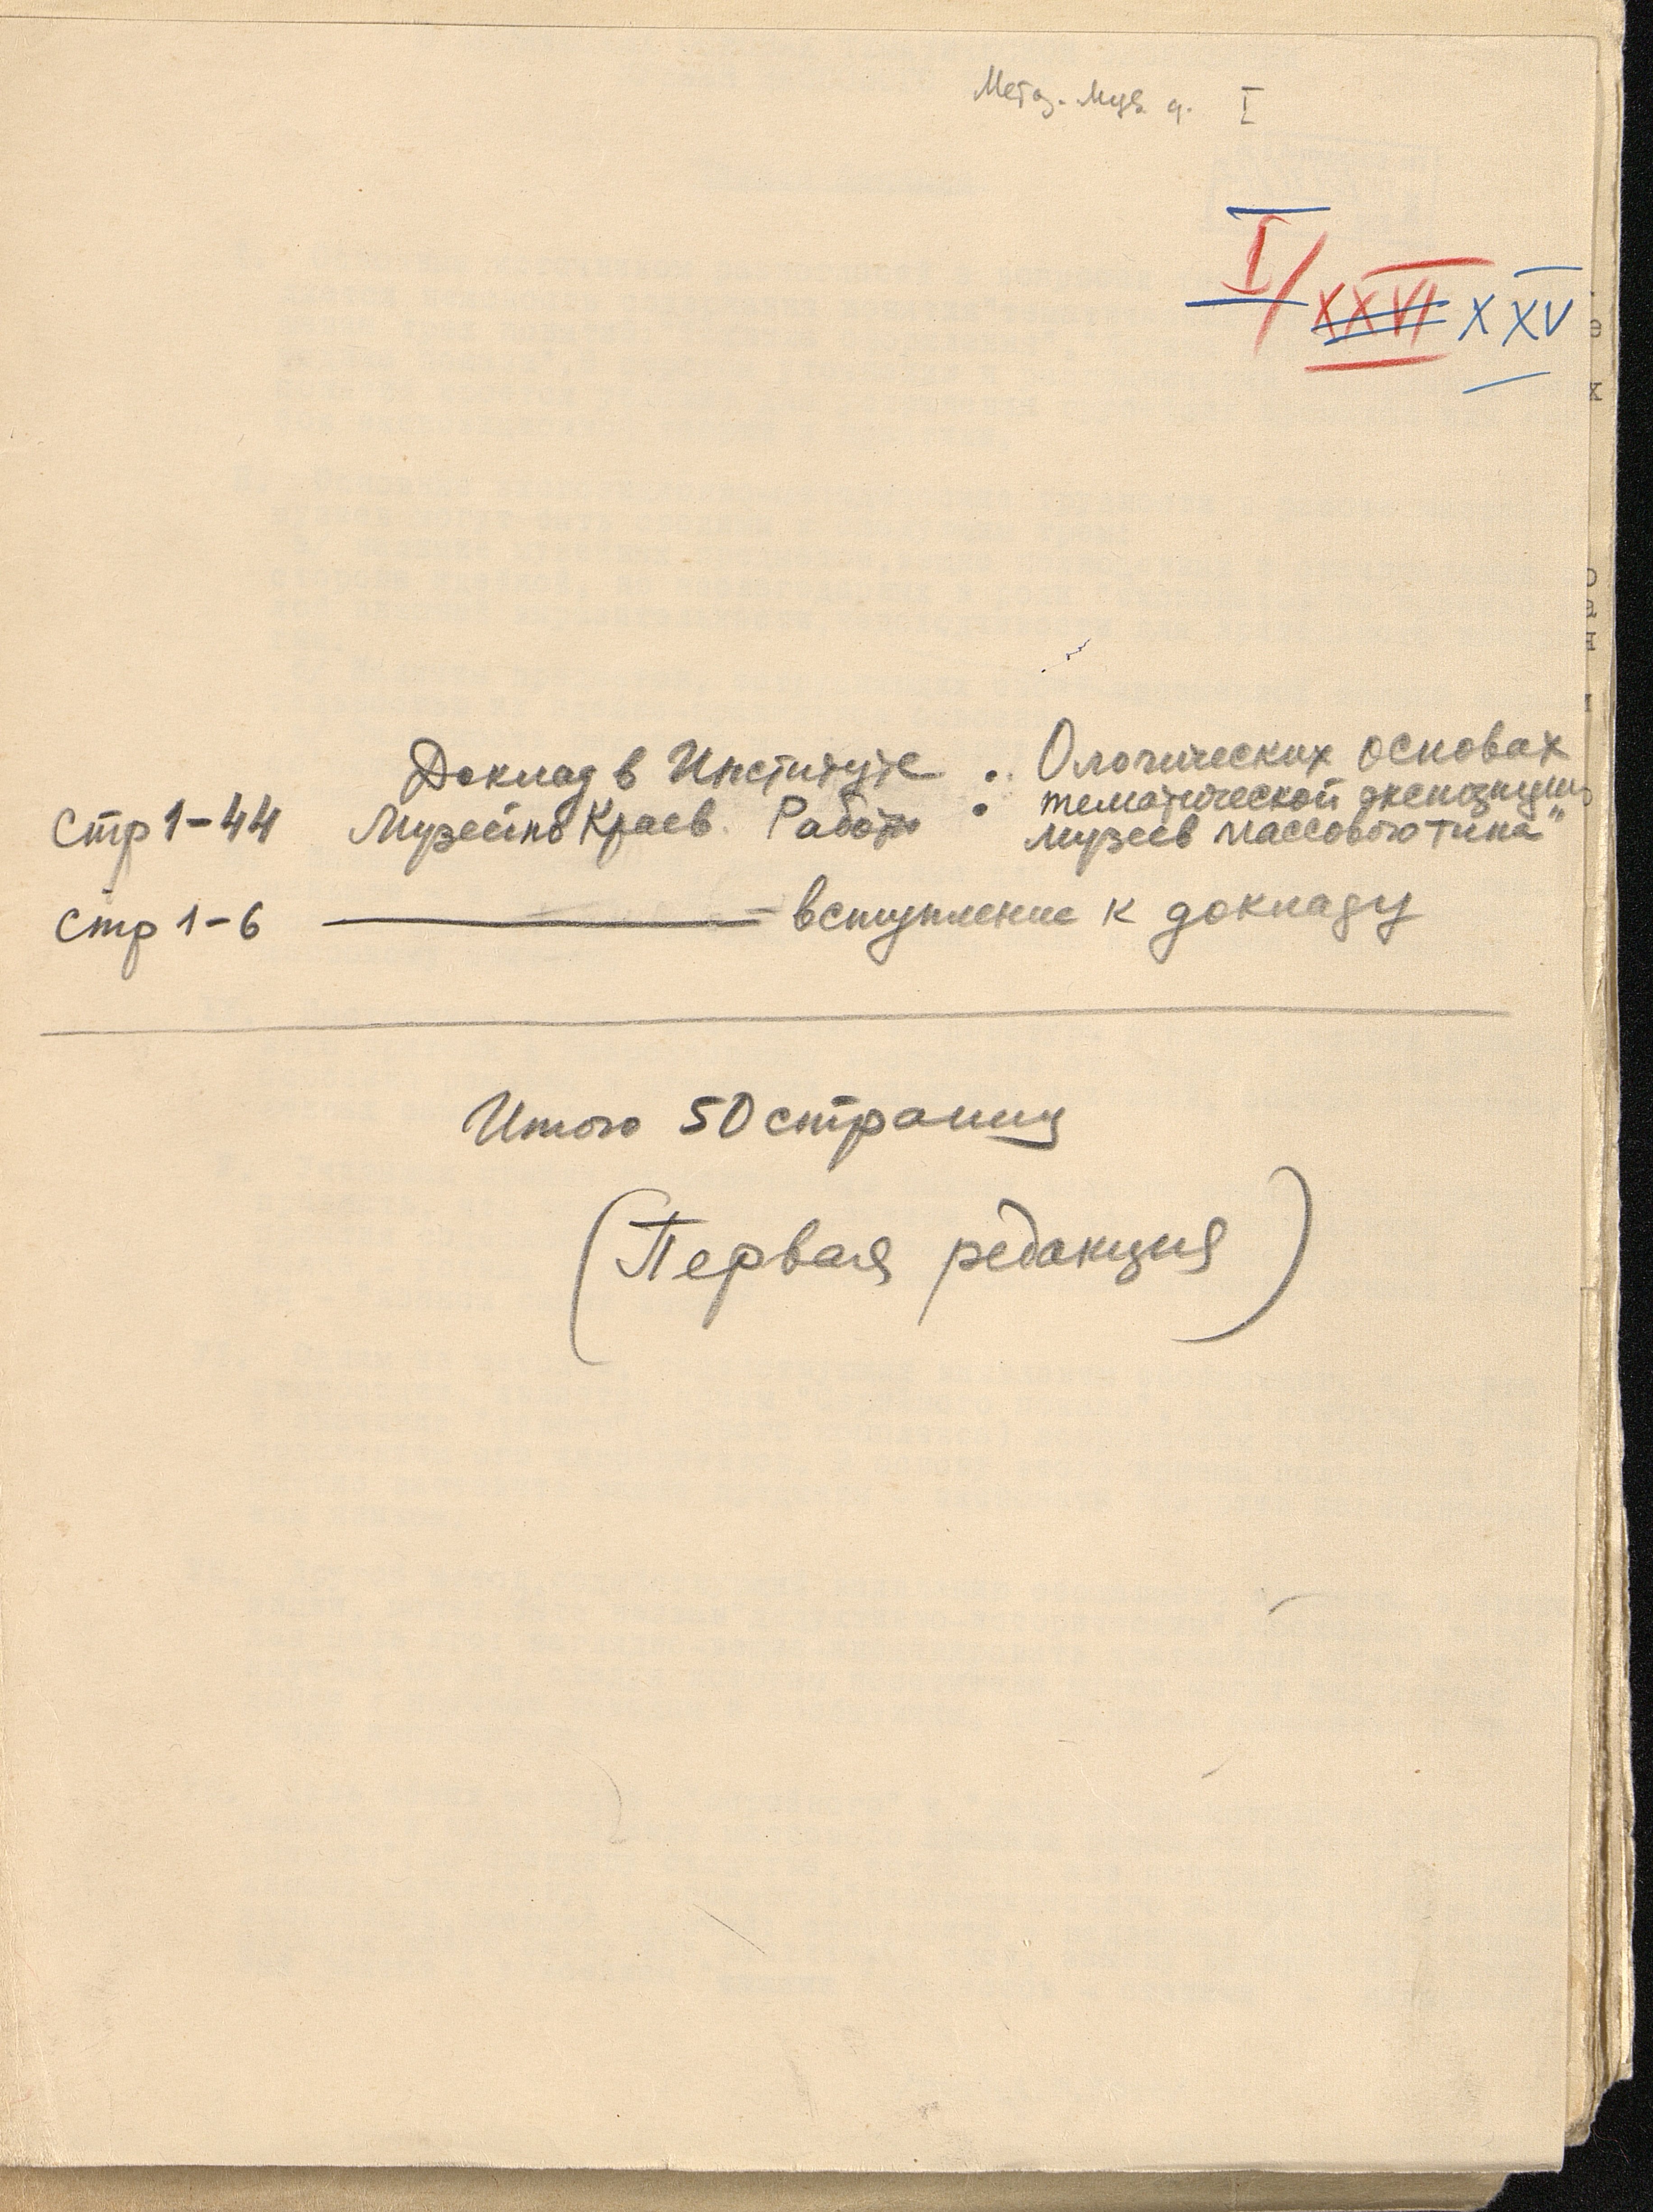 Метод. Муз. д. I
I/XXVI XXV
Доклад в Институте : О логических основах
Стр 1-44 Музейно Краев. Работы тематической экспозиции
музеев массового типа"
Стр 1-6 —— вступление к докладу
Итого 50 страниц
(Первая редакция)